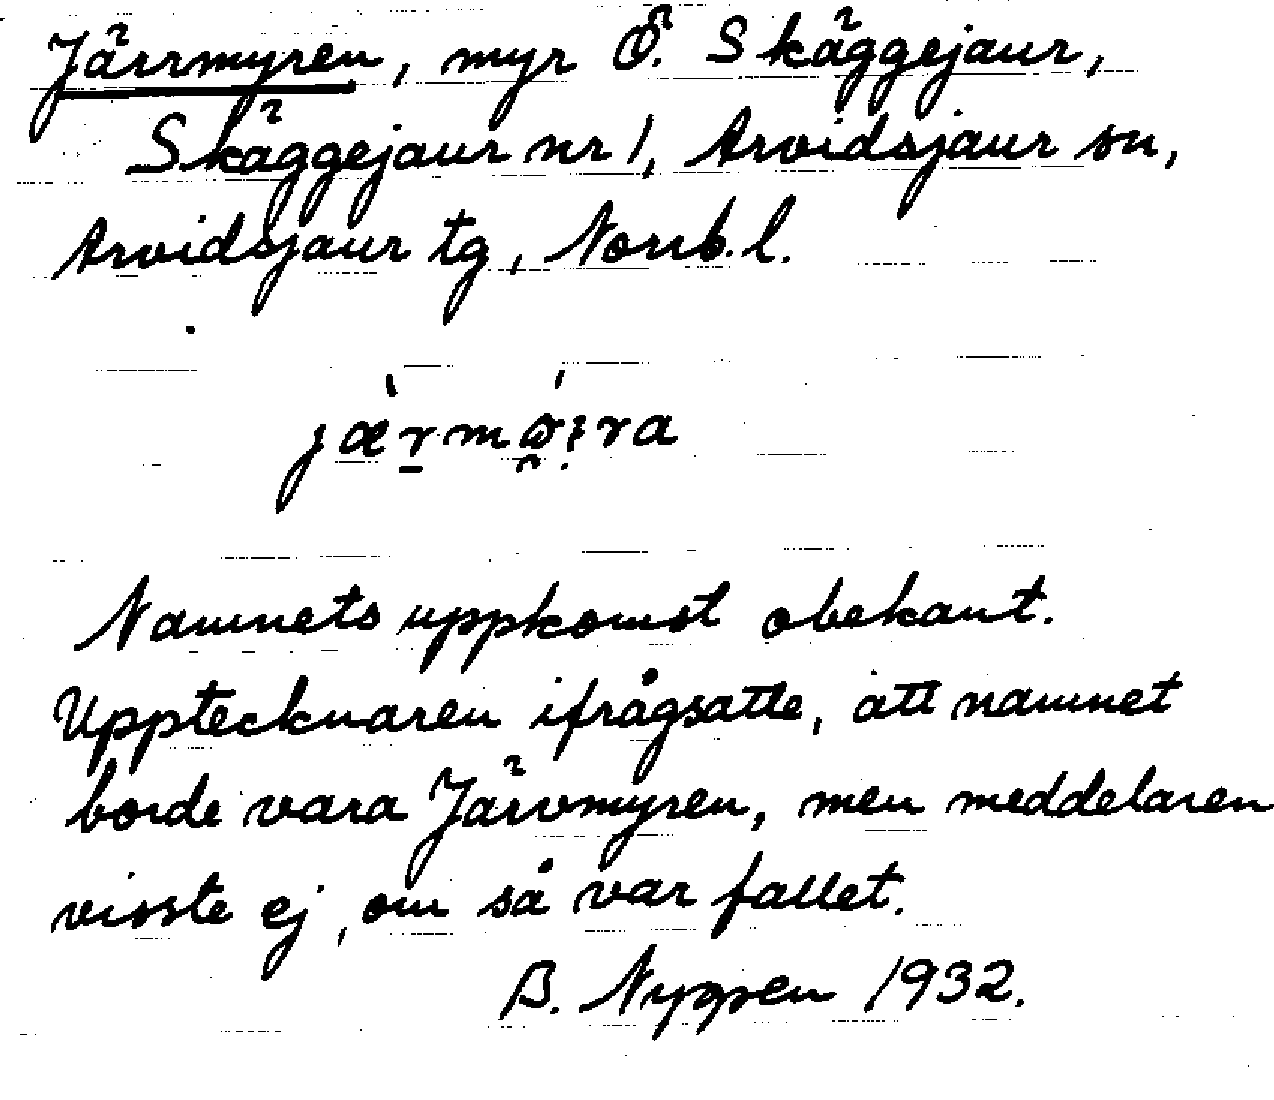 Järrmyren, myr Ö. Skäggejaur,
Skäggejaur nr 1, Arvidsjaur sn,
Arvidsjaur tg, Norrb. l.
Namnets uppkomst obekant.
Upptecknaren ifrågsatte, att namnet
borde vara Järvmyren, men meddelaren
visste ej, om så var fallet.
B. Nygren 1932.